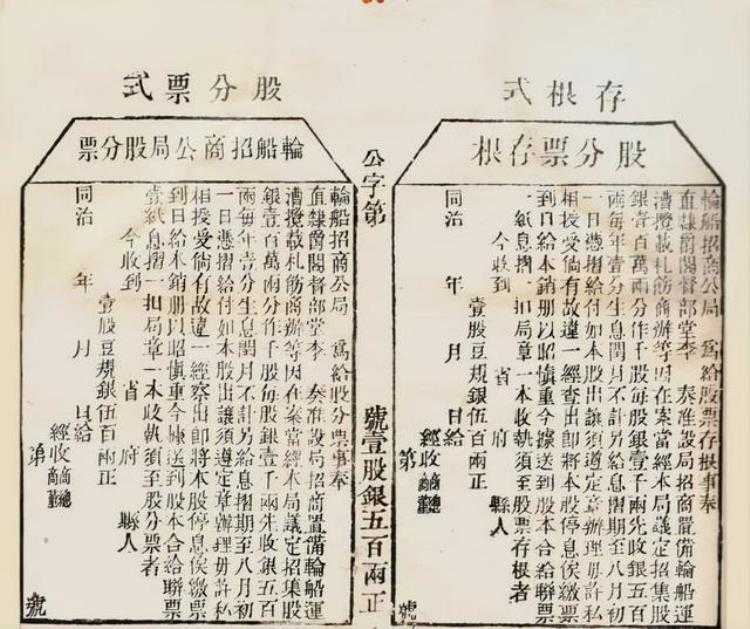 存根式
股分票存根
輪船招商公局　爲給股票存根事奉
直隸爵閣督部堂李　奏准設局招商置備輪船運
漕攬載札飭商辦等因在案當經本局議定招集股
銀壹百萬兩分作千股每股銀壹千兩先收銀五百
兩每年壹分生息閏月不計另給息摺期至八月初
一日憑摺給付如本股出讓須遵定章辦理毋許私
相授受倘有故違一經查出卽將本股停息俟繳票
到日給本銷册以昭慎重今據送到股本合給聯票
一紙息摺一扣局章一本收執須至股票存根者
今收到　省　府　縣人
壹股豆規銀伍百兩正
同治　年　月　日給
經收商總
第　號
公字第　號壹股銀五百兩正
股分票式
輪船招商公局股分票
輪船招商公局　爲給股分票事奉
直隸爵閣督部堂李　奏准設局招商置備輪船運
漕攬載札飭商辦等因在案當經本局議定招集股
銀壹百萬兩分作千股每股銀壹千兩先收銀五百
兩每年壹分生息閏月不計另給息摺期至八月初
一日憑摺給付如本股出讓須遵定章辦理毋許私
相授受倘有故違一經察出卽將本股停息俟繳票
到日給本銷册以昭慎重今據送到股本合給聯票
壹紙息摺一扣局章一本收執須至股分票者
今收到　省　府　縣人
壹股豆規銀伍百兩正
同治　年　月　日給
經收商總
第　號